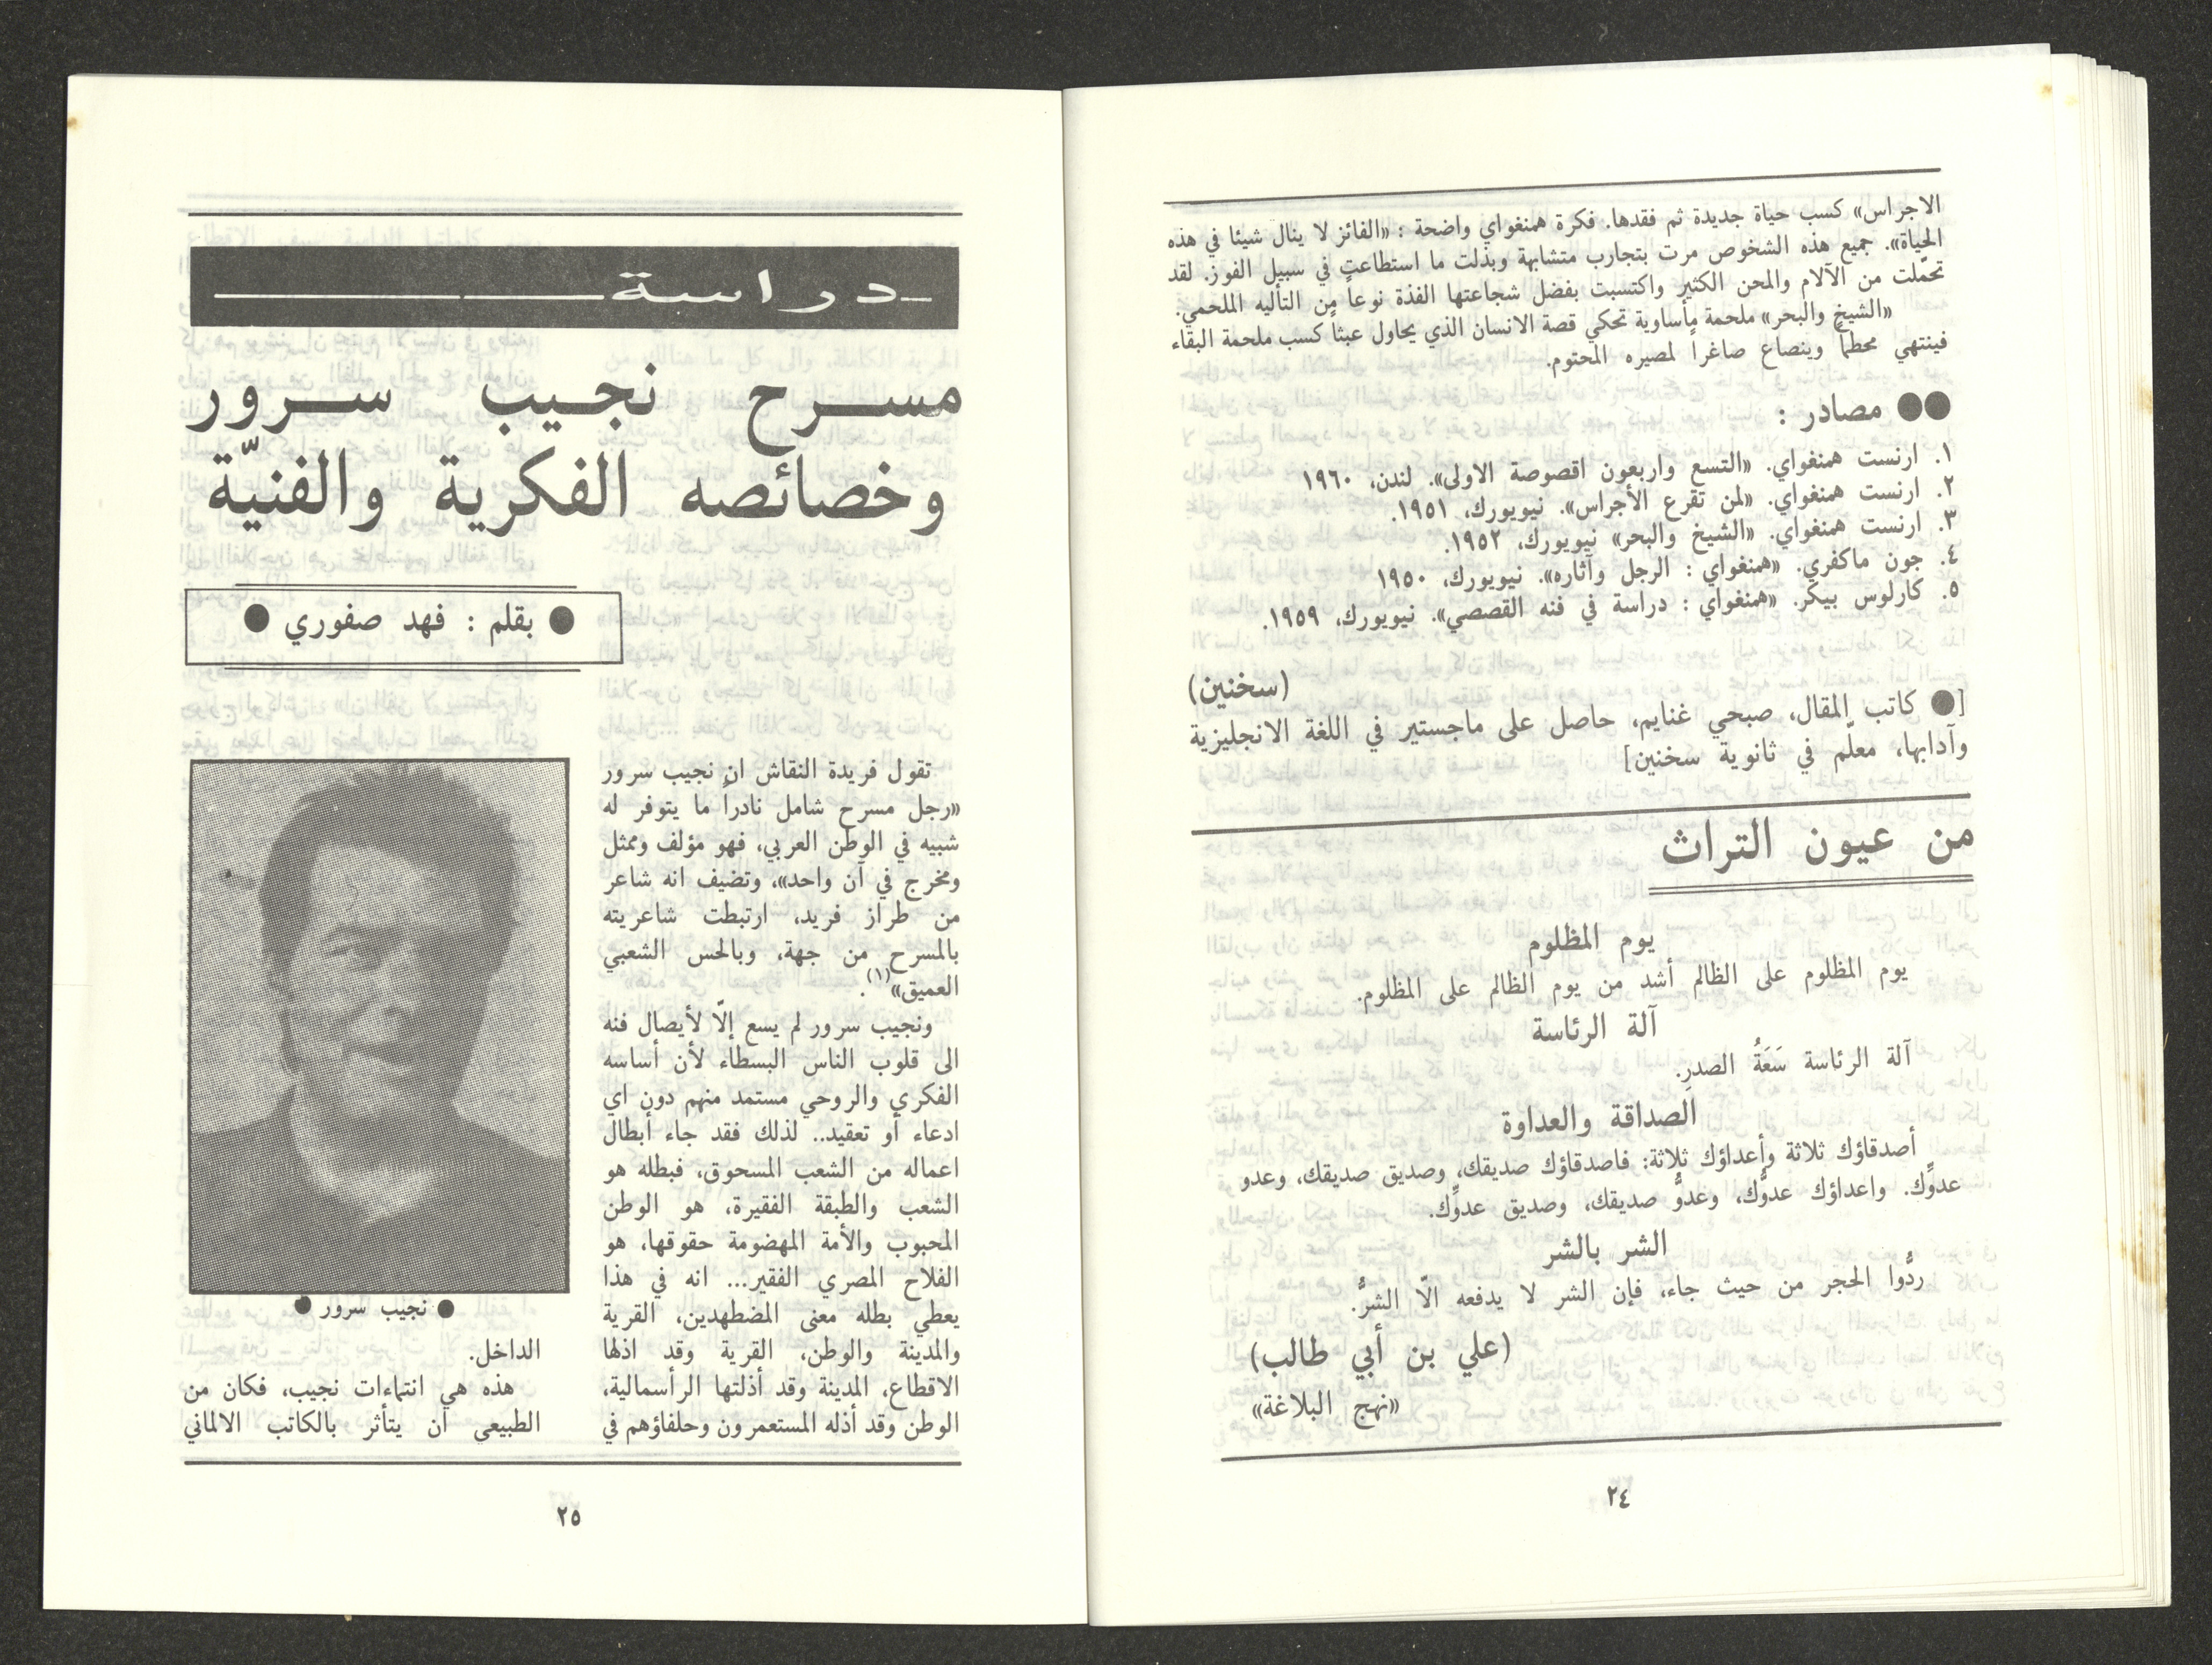 الاجراس» كسب حياة جديدة ثم فقدها. فكرة همنغواي واضحة : «الفائز لا ينال شيئا في هذه
الحياة». جميع هذه الشخوص مرت بتجارب متشابهة وبذلت ما استطاعت في سبيل الفوز. لقد
تحمّلت من الآلام والمحن الكثير واكتسبت بفضل شجاعتها الفذة نوعاً من التأليه الملحمي.
«الشيخ والبحر» ملحمة مأساوية تحكي قصة الانسان الذي يحاول عبثاً كسب ملحمة البقاء
فينتهي محطماً وينصاع صاغراً لمصيره المحتوم.
●● مصادر :
١. ارنست همنغواي. «التسع واربعون اقصوصة الاولى». لندن، ١٩٦٠
٢. ارنست همنغواي. «لمن تقرع الأجراس». نيويورك، ١٩٥١.
٣. ارنست همنغواي. «الشيخ والبحر» نيويورك، ١٩٥٢.
٤. جون ماكفري. «همنغواي : الرجل وآثاره». نيويورك، ١٩٥٠
٥. كارلوس بيكر. «همنغواي : دراسة في فنه القصصي». نيويورك، ١٩٥٩.
(سخنين)
[● كاتب المقال، صبحي غنايم، حاصل على ماجستير في اللغة الانجليزية
وآدابها، معلّم في ثانوية سخنين]
من عيون التراث
يوم المظلوم
يوم المظلوم على الظالم أشد من يوم الظالم على المظلوم.
آلة الرئاسة
آلة الرئاسة سَعَةُ الصدرِ.
الصداقة والعداوة
أصدقاؤك ثلاثة وأعداؤك ثلاثة: فاصدقاؤك صديقك، وصديق صديقك، وعدو
عدوِّك. واعداؤك عدوُّك، وعدوُّ صديقك، وصديق عدوِّك.
الشر بالشر
ردُّوا الحجر من حيث جاء، فإن الشر لا يدفعه الّا الشرُّ.
(علي بن أبي طالب)
«نهج البلاغة»
٢٤
دراسة
مسرح نجيب سرور
وخصائصه الفكرية والفنيّة
● بقلم : فهد صفوري ●
تقول فريدة النقاش ان نجيب سرور
«رجل مسرح شامل نادراً ما يتوفر له
شبيه في الوطن العربي، فهو مؤلف وممثل
ومخرج في آن واحد»، وتضيف انه شاعر
من طراز فريد، ارتبطت شاعريته
بالمسرح من جهة، وبالحس الشعبي
العميق»(١).
ونجيب سرور لم يسع إلّا لأيصال فنه
الى قلوب الناس البسطاء لأن أساسه
الفكري والروحي مستمد منهم دون اي
ادعاء أو تعقيد.. لذلك فقد جاء أبطال
اعماله من الشعب المسحوق، فبطله هو
الشعب والطبقة الفقيرة، هو الوطن
المحبوب والأمة المهضومة حقوقها، هو
الفلاح المصري الفقير... انه في هذا
يعطي بطله معنى المضطهدين، القرية
والمدينة والوطن، القرية وقد اذلها
الاقطاع، المدينة وقد أذلتها الرأسمالية،
الوطن وقد أذله المستعمرون وحلفاؤهم في
● نجيب سرور ●
الداخل.
هذه هي انتماءات نجيب، فكان من
الطبيعي ان يتأثر بالكاتب الالماني
٢٥